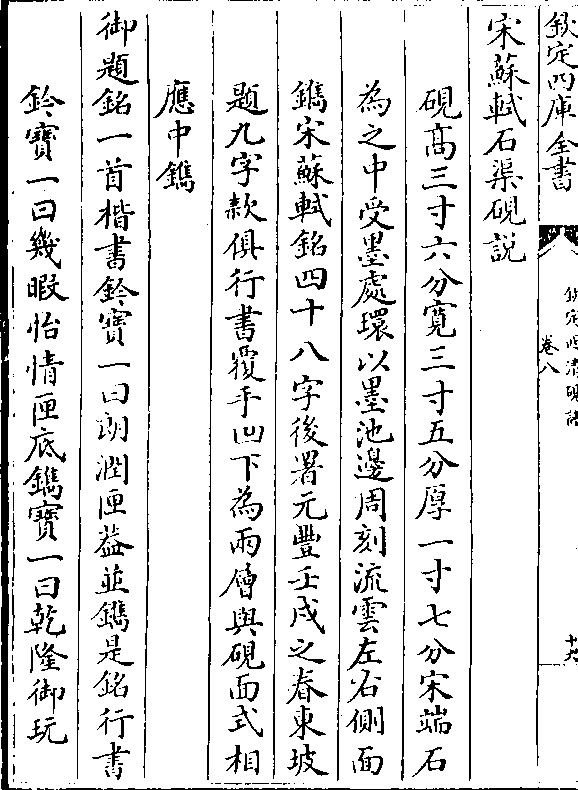 欽定四庫全書
欽定西清硯譜
卷八
十六
宋蘇軾石渠硯說
硯高三寸六分寛三寸五分厚一寸七分宋端石
為之中受墨處環以墨池邊周刻流雲左右側面
鐫宋蘇軾銘四十八字後署元豐壬戌之春東坡
題九字款俱行書覆手凹下為兩層與硯面式相
應中鐫
御題銘一首楷書鈐寶一曰朗潤匣葢並鐫是銘行書
鈐寶一曰幾暇怡情匣底鐫寶一曰乾隆御玩